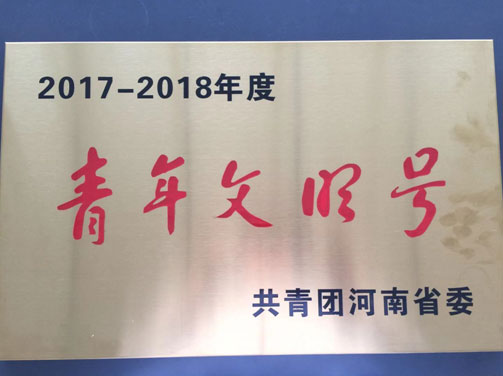 2017-2018年度
青年文明号
共青团河南省委